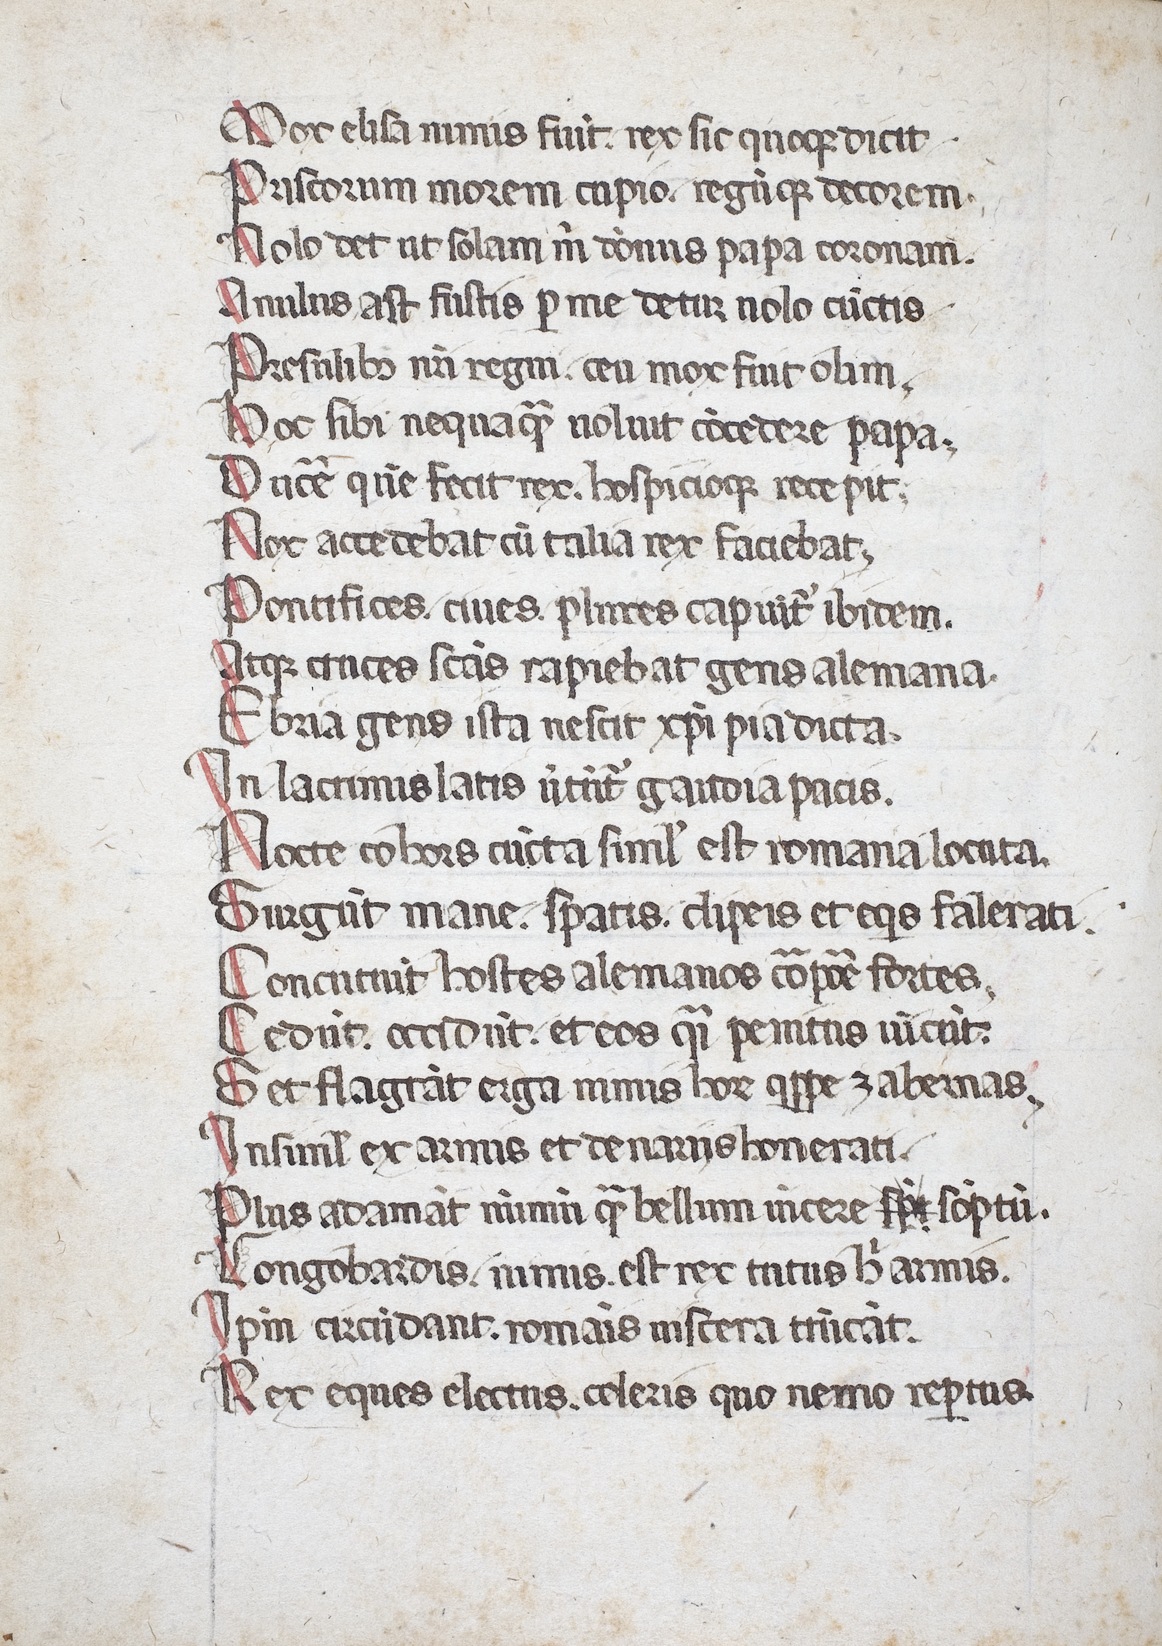 Vox elisa nimis fuit. rex sic quoqꝫ dicit
Priscorum morem cupio. regūqꝫ decorem.
Nolo det ut solam m̄ dōnus papa coronam.
Anulus ast fustis ꝑ me detur uolo cūctis
Presulibꝫ nr̄i regni. ceu mox fuit olim,
Hoc sibi nequaqᷓ uoluit cōcedere papa.
Ducē̄ quē fecit rex. hospicioqꝫ recepit.
Nox accedebat cū talia rex faciebat,
Pontifices. ciues. plures capiūtᷣ ibidem.
Atqꝫ cruces scās rapiebat gens alemana.
Ebria gens ista nescit xp̄i pia dicta.
In lacrimis latis ūtūtᷣ gaudia pacis.
Nocte cohors cūcta simlʼ est romana locuta.
Surgūt mane. spatis. clipeis et eqis falerati.
Concutiūt hostes alemanos cōpōe fortes,
Cedūt. occidūt. et eos qͣi penitus uīcūt.
Set flagrāt erga nimis hore qͥppe ꝫabernas,
Insiml̄ ex armis et denariis honerati.
Plus adamāt nūmū qᷓ bellum uīcere sōptū.
Longobardis. nimis. est rex tutus hͥ armis.
Ip̄m circūdant. romāis uiscera trūcāt.
Rex eques electus. celeris quo nemo reꝑtus.